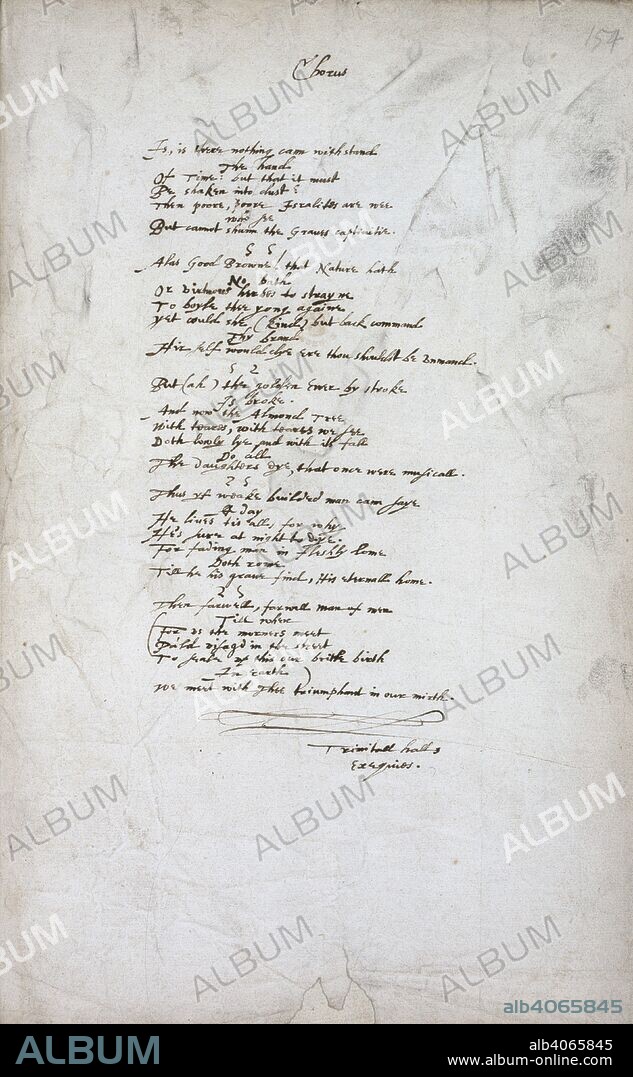 157
Chorus
Is, is there nothing cann withstand
The hand
Of Time: but that it must
Be shaken into dust?
Then poore, poore Israelites are wee
who see
But cannot shunn the Graves captivitie.
Alas Good Browne! that Nature hath
No bath
Or virtuous herbes to strayne
To boyle thee yong againe
Yet could she (kind) but back command
Thy brand
Hir self would dye ere thou shouldst be vnmand.
But (ah) the golden Ewer by stroke
Is broke.
And now the Almond Tree
With teares, with teares we see
Doth lowly lye, and with its fall
Do all
The daughters dye, that once were musicall.
Thus yf weake builded man cann saye
A day
He lives tis all, for why
He's sure at night to dye.
For fading man in fleshly lome
Doth rome
Till he his grave find, His eternall home.
Then farwell, farwell man of men
Till when
(For us the morners meet
Pal'd visag'd in the street
To seale up this our britle birth
In earth)
We meet with thee triumphant in our mirth.
Trinitall hall's
Exequies.
ALBUM
alb4065845
ALBUM
alb4065845
www.album-online.com